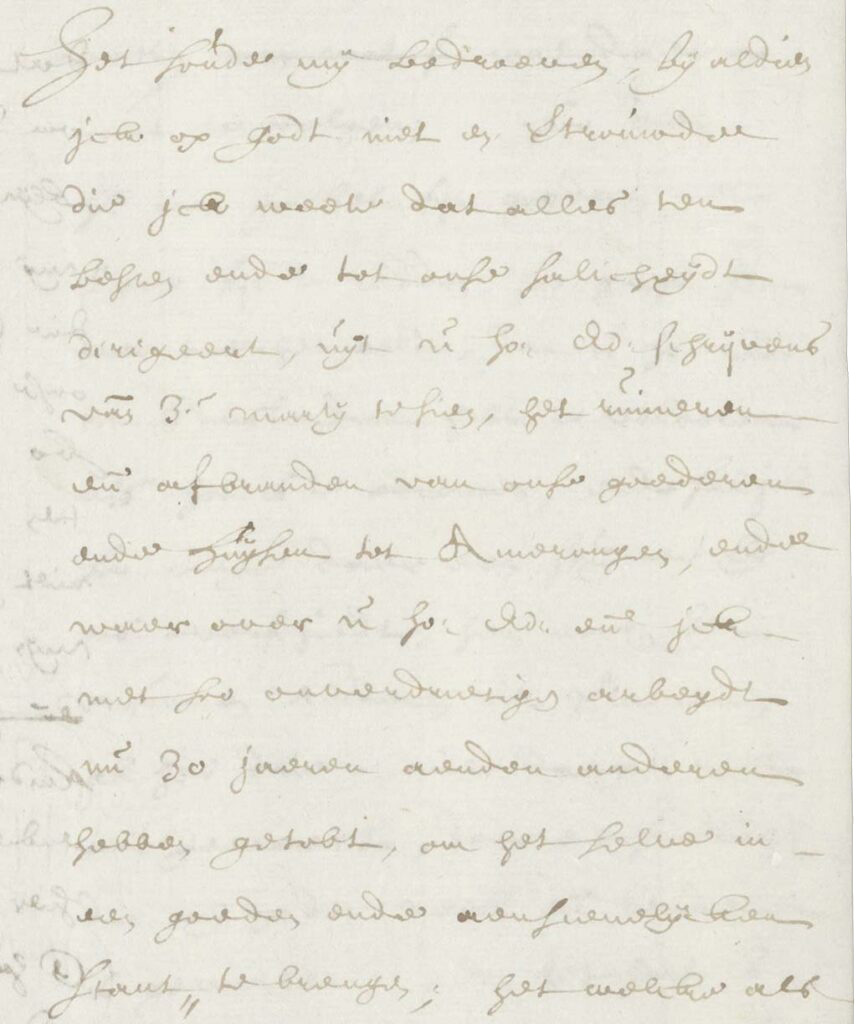 Het soude mij bedroeven, bij aldien
jck op godt niet en Vtrouwdee
die jck weete dat alles ten
besten ende tot onse salicheijdt
dirigeert, uijt u ho: Ed: schrijvens
van 3.e martij te sien, het ruineren
en afbranden van onse goederen
ende Huijsen tot Amerongen, ende
waer over u ho: Ed: en jck
met soo onverdrietigen arbeijdt
nu 30 jaeren aenden anderen
hebben getobt, om het selve in
een goeden ende aensienelijcken
stant te brengen, het welcke als